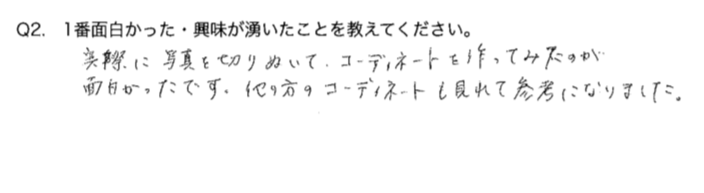 Q2. 1番面白かった・興味が湧いたことを教えてください。
実際に写真を切りぬいて、コーディネートを作ってみたのが
面白かったです。他の方のコーディネートも見れて参考になりました。